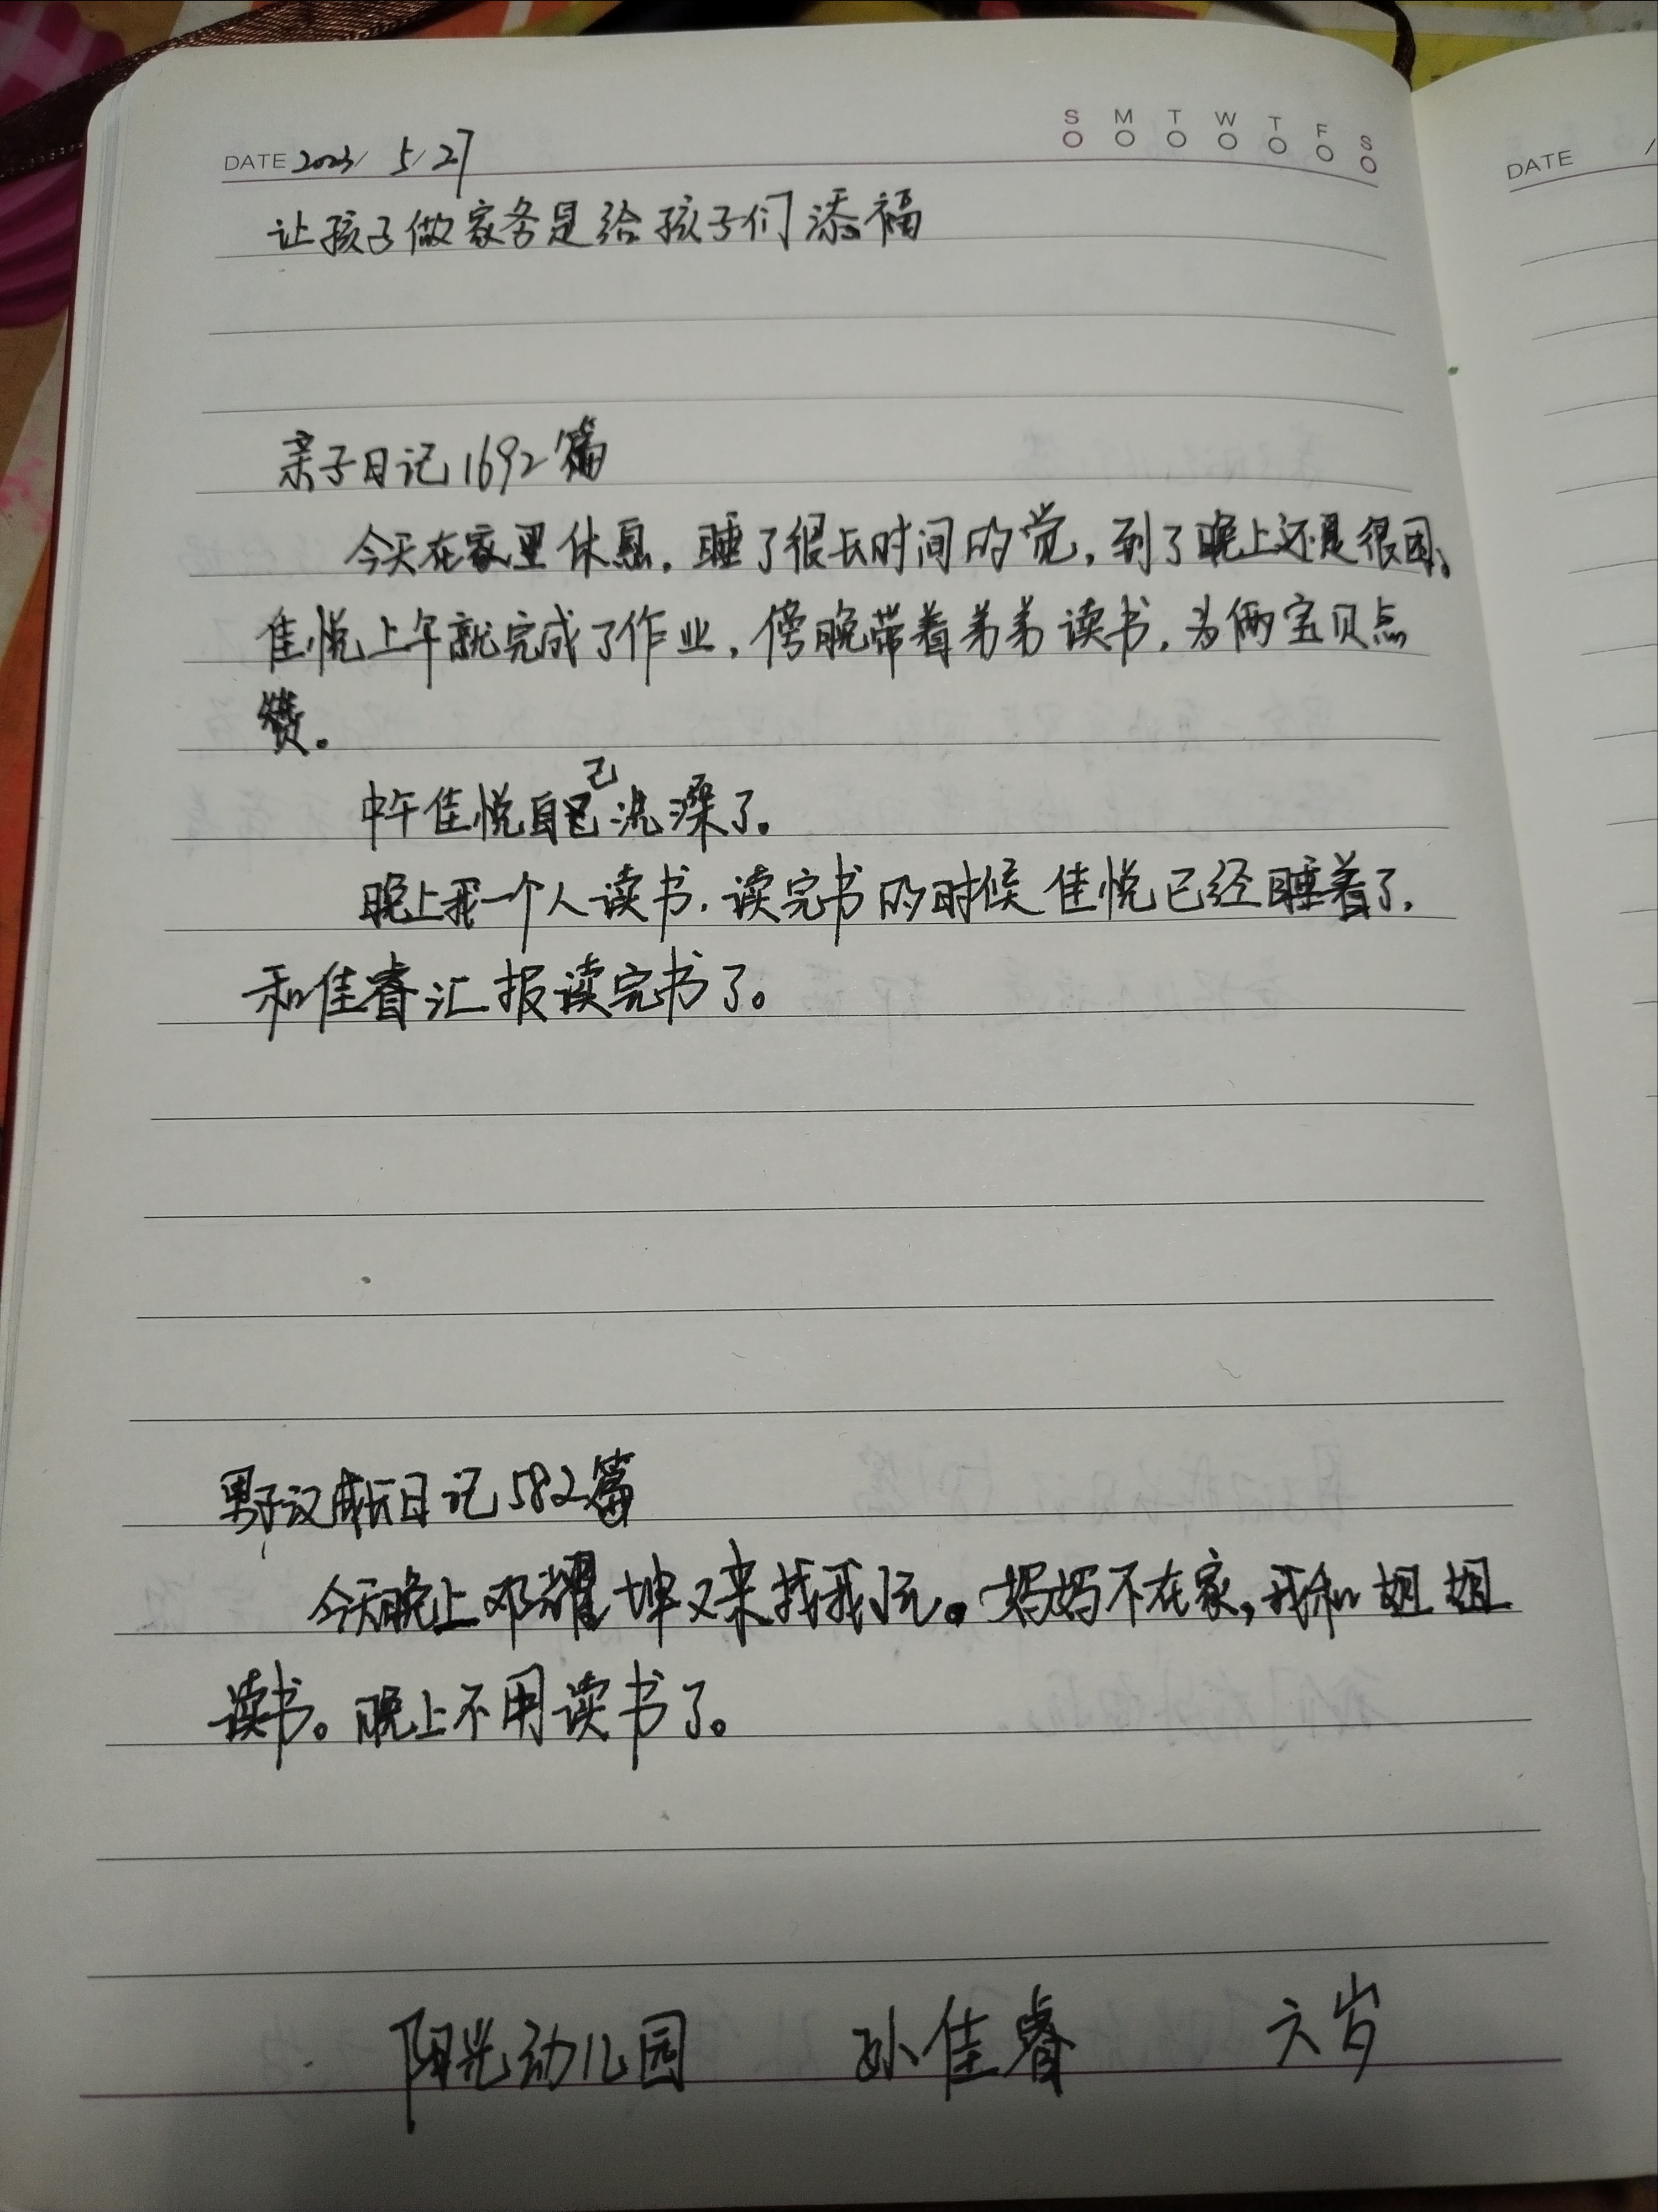 S M T W T F S
DATE 2023/ 5/27
DATE /
让孩子做家务是给孩子们添福
亲子日记1692篇
今天在家里休息，睡了很长时间的觉，到了晚上还是很困、
佳悦上午就完成了作业，傍晚带着弟弟读书，为俩宝贝点
赞。
中午佳悦自己洗澡了。
晚上我一个人读书，读完书的时候佳悦已经睡着了，
和佳睿汇报读完书了。
男子汉成长日记582篇
今天晚上邓耀坤又来找我玩。妈妈不在家，我和姐姐
读书。晚上不用读书了。
阳光幼儿园 孙佳睿 六岁